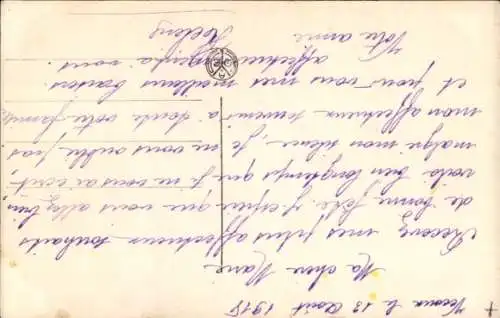 le 13 Août 1915
Ma chère Marie
Recevez mes plus affectueux souhaits
de bonne fête j'espère que vous allez bien
voila bien longtemps que je ne vous ai écrit
malgré mon silence je ne vous oublie pas
mon affectueux souvenir à toute votre famille
et pour vous mes meilleurs baisers
Votre amie